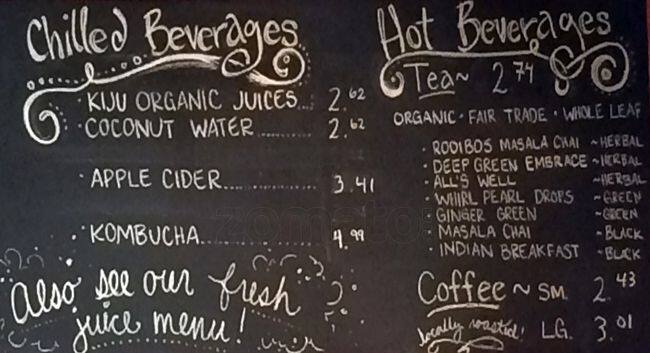 Chilled Beverages
· KIJU ORGANIC JUICES... 2.62
· COCONUT WATER.......... 2.62
· APPLE CIDER.............. 3.41
· KOMBUCHA................ 4.99
Also see our fresh
juice menu!
Hot Beverages
Tea~ 2.74
ORGANIC · FAIR TRADE · WHOLE LEAF
· ROOIBOS MASALA CHAI ~HERBAL
· DEEP GREEN EMBRACE ~HERBAL
· ALL'S WELL ~HERBAL
· WHIRL PEARL DROPS ~GREEN
· GINGER GREEN ~GREEN
· MASALA CHAI ~BLACK
· INDIAN BREAKFAST ~BLACK
Coffee ~ SM. 2.43
locally roasted! LG. 3.01
zomato